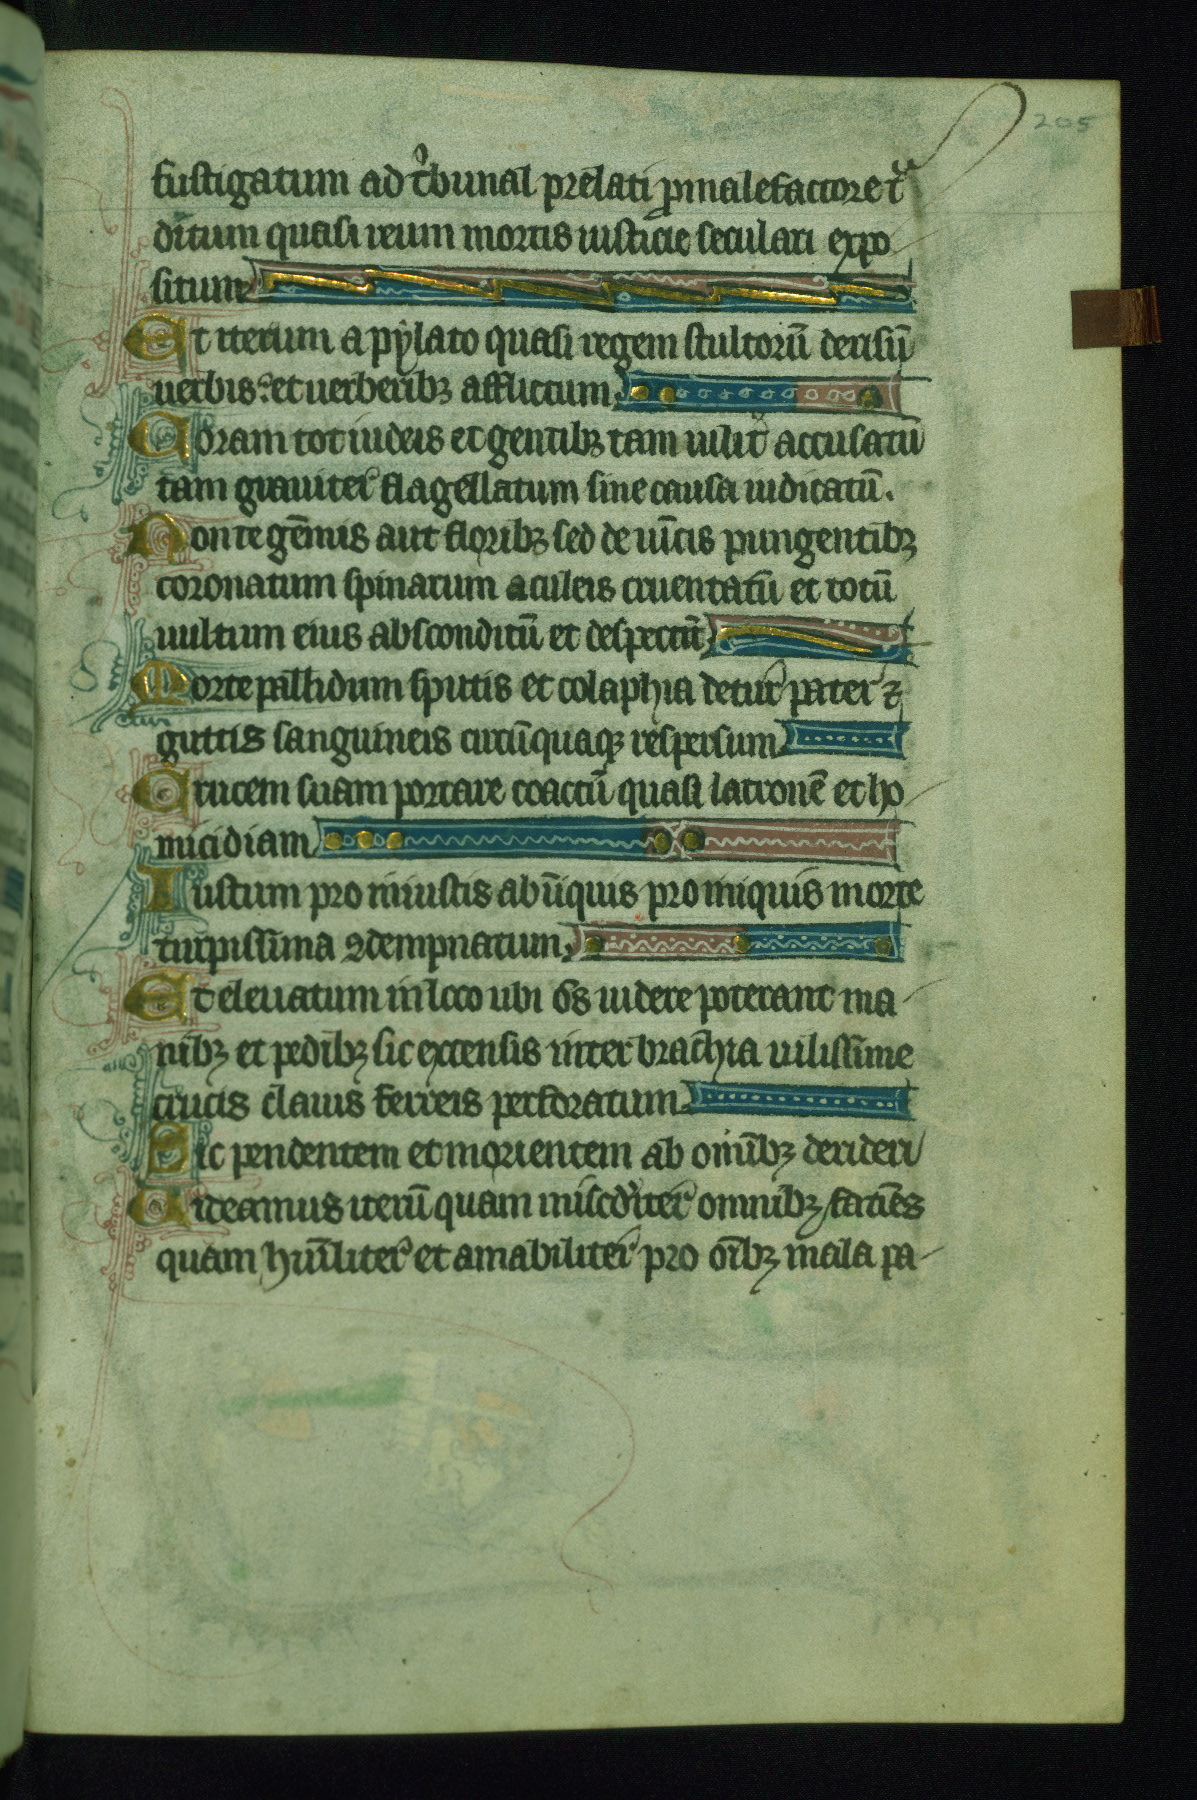 205
fustigatum ad tͥbunal prelati ꝓ malefactore tͣ
ditum quasi reum mortis iusticie seculari expo
situm
Et iterum a pylato quasi regem stultorū derisū
uerbis et uerberibꝫ afflictum
Coram tot iudeis et gentibꝫ tam uilit̾ accusatū
tam grauiter flagellatum sine causa iudicatū.
Non te gēmis aut floribꝫ sed de iūcis pungentibꝫ
coronatum spinarum aculeis cruentatū et totū
uultum eius absconditū et despectū
Morte pallidum sputis et colaphia detur pater ⁊
guttis sanguineis circūquaqꝫ respersum
Crucem suam portare coactū quasi latronē et ho
micidiam
Iustum pro iniustis ab iīquis pro iniquis morte
turpissima ꝯdempnatum
Et eleuatum in loco ubi oēs uidere poterant ma
nibꝫ et pedibꝫ sic extensis inter brachia uilissime
crucis clauis ferreis perforatum
Sic pendentem et morientem ab omībꝫ derideri
Uideamus iterū quam mīscͦrditer omnibꝫ faciēs
quam hūiliter et amabiliter pro oībꝫ mala pa